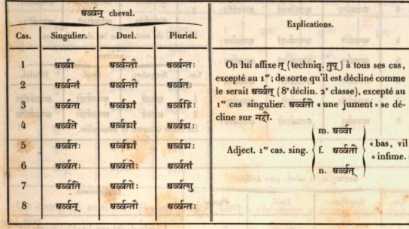 अर्व्वन् cheval.
Explications.
Cas. Singulier. Duel. Pluriel.
1 अर्व्वा अर्व्वन्तौ अर्व्वन्तः
2 अर्व्वन्तं अर्व्वन्तौ अर्व्वतः
3 अर्व्वता अर्व्वद्भ्यां अर्व्वद्भिः
4 अर्व्वते अर्व्वद्भ्यां अर्व्वद्भ्यः
5 अर्व्वतः अर्व्वद्भ्यां अर्व्वद्भ्यः
6 अर्व्वतः अर्व्वतोः अर्व्वतां
7 अर्व्वति अर्व्वतोः अर्व्वत्सु
8 अर्व्वन् अर्व्वन्तौ अर्व्वन्तः
On lui affixe त् (techniq. तृप्) à tous ses cas,
excepté au 1er; de sorte qu'il est décliné comme
le serait अर्व्वत् (8e déclin. 2e classe), excepté au
1er cas singulier. अर्व्वती « une jument » se dé-
cline sur नदी.
m. अर्व्वा
Adject. 1er cas. sing. f. अर्व्वती « bas, vil
n. अर्व्वत् « infime.